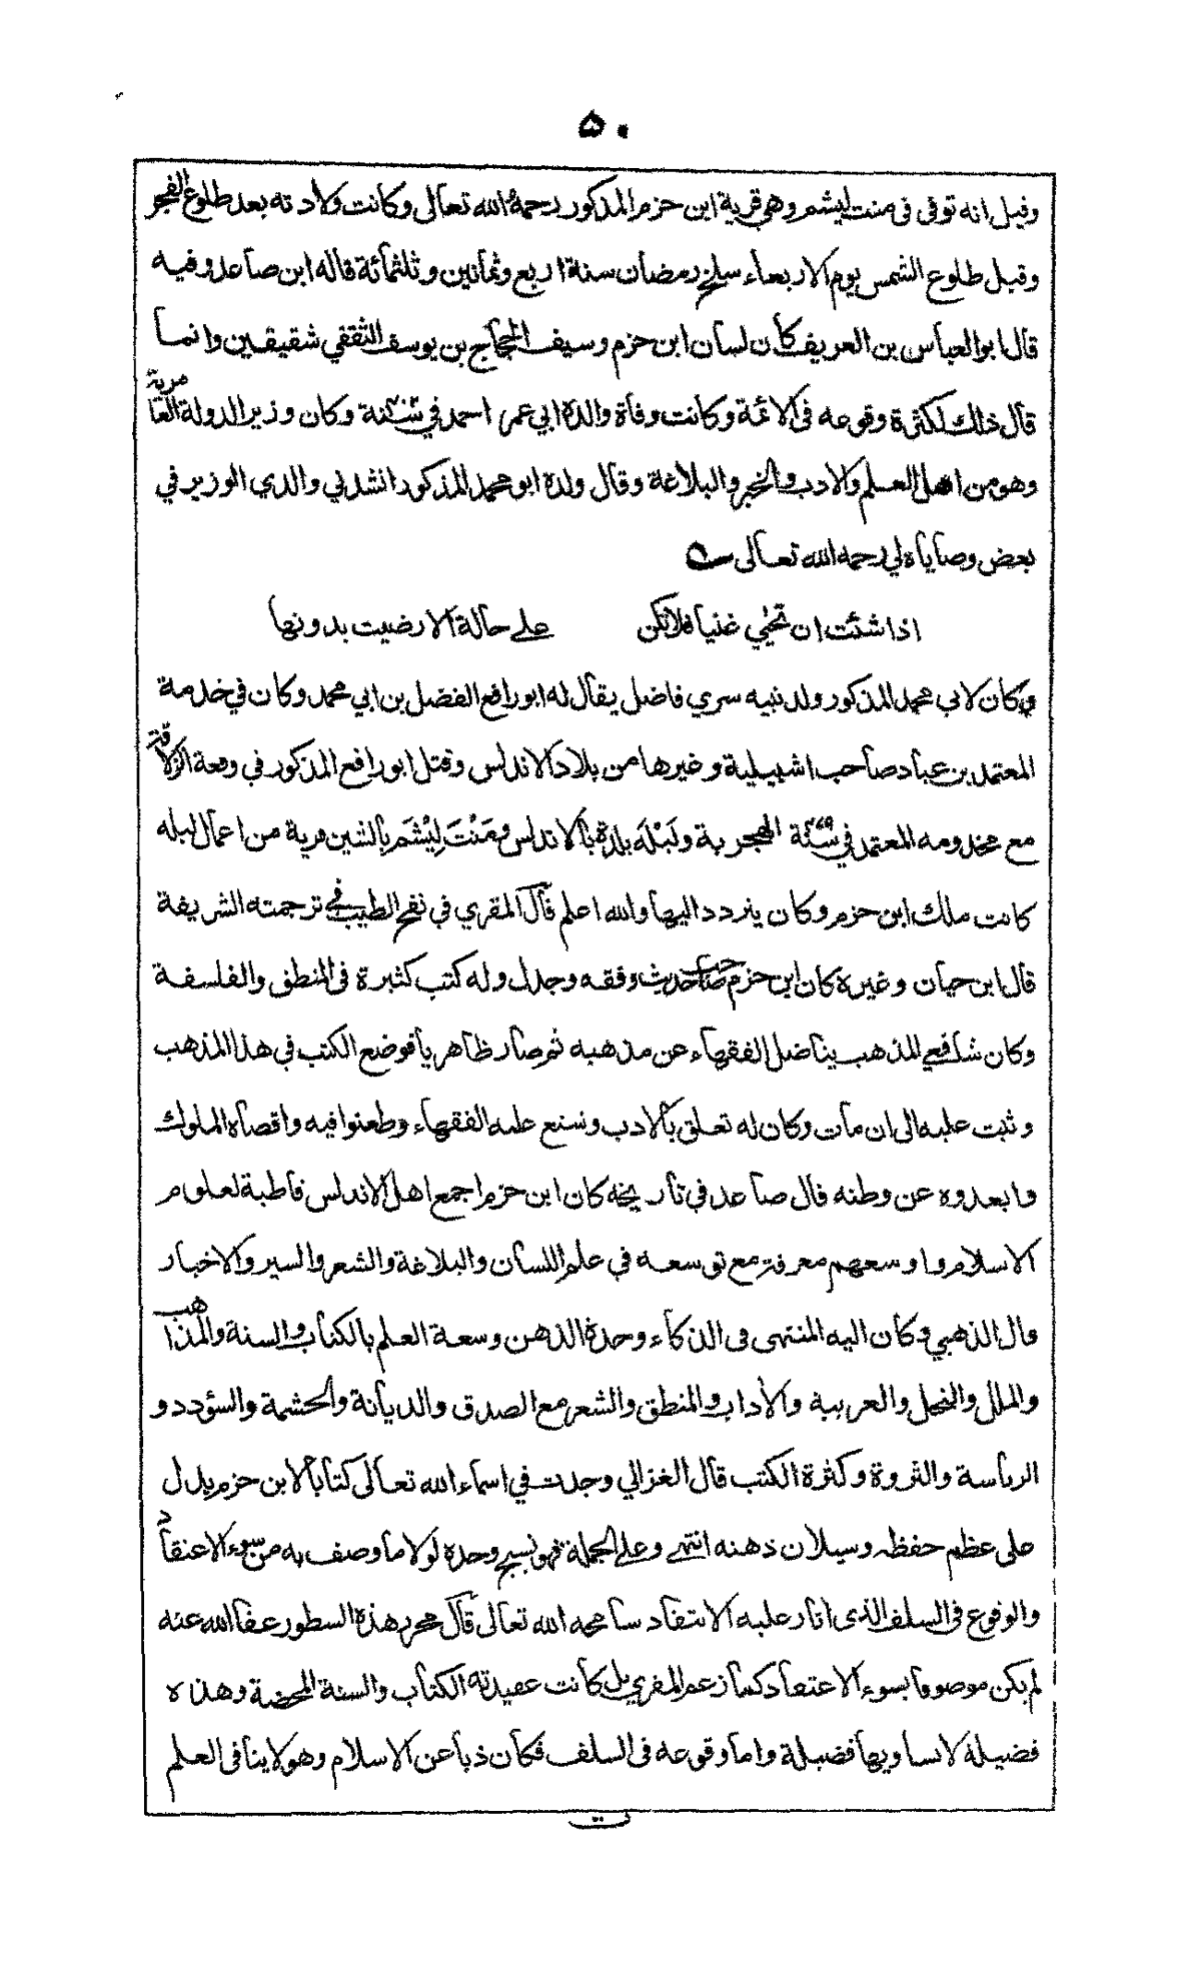 ۵۰
وقيل انه توفى فى منت ليشم وهي قرية ابن حزم المذكور رحمه الله تعالى وكانت ولادته بعد طلوع الفجر
وقبل طلوع الشمس يوم الاربعاء سلخ رمضان سنة اربع وثمانين وثلثمائة قاله ابن صاعد وفيه
قال ابو العباس بن العريف كان لسان ابن حزم وسيف الحجاج بن يوسف الثقفي شقيقين وانما
قال ذلك لكثرة وقوعه فى الائمة وكانت وفاة والده ابي عمر احمد في سنة وكان وزير الدولة العامرية
وهو من اهل العلم والادب والخير والبلاغة وقال ولده ابو محمد المذكور انشدني والدي الوزير في
بعض وصاياه لي رحمه الله تعالى
اذا شئت ان تحيٰي غنيا فلا تكن على حالة الا رضيت بدونها
وكان لابي محمد المذكور ولد نبيه سري فاضل يقال له ابو رافع الفضل بن ابي محمد وكان في خدمة
المعتمد بن عباد صاحب اشبيلية وغيرها من بلاد الاندلس وقتل ابو رافع المذكور في وقعة الزلاقة
مع مخدومه المعتمد في سنة ۴۷۹ الهجرية ولَبْلَه بلدة بالاندلس ومَنْتَ لِيْشَم بالشين قرية من اعمال لبله
كانت ملك ابن حزم وكان يتردد اليها والله اعلم قال المقري في نفح الطيب في ترجمته الشريفة
قال ابن حيان وغيره كان ابن حزم صاحب حديث وفقه وجدل وله كتب كثيرة فى المنطق والفلسفة
وكان شافعي المذهب يناضل الفقهاء عن مذهبه ثم صار ظاهريا فوضع الكتب في هذا المذهب
وثبت عليه الى ان مات وكان له تعلق بالادب وشنع عليه الفقهاء وطعنوا فيه واقصاه الملوك
وابعدوه عن وطنه قال صاعد في تاريخه كان ابن حزم اجمع اهل الاندلس قاطبة لعلوم
الاسلام واوسعهم معرفة مع توسعه في علم اللسان والبلاغة والشعر والسير والاخبار
قال الذهبي وكان اليه المنتهى فى الذكاء وحدة الذهن وسعة العلم بالكتاب والسنة والمذاهب
والملل والنحل والعربية والأداب والمنطق والشعر مع الصدق والديانة والحشمة والسؤدد و
الرياسة والثروة وكثرة الكتب قال الغزالي وجدت في اسماء الله تعالى كتابا لابن حزم يدل
على عظم حفظه وسيلان ذهنه انتهى وعلى الجملة فهو نسيج وحده لولا ما وصف به من سوء الاعتقاد
والوقوع فى السلف الذى اثار عليه الانتقاد سامحه الله تعالى قال محرر هذه السطور عفا الله عنه
لم يكن موصوفا بسوء الاعتقاد كما زعم المقري بل كانت عقيدته الكتاب والسنة المحضة وهذه
فضيلة لا تساويها فضيلة واما وقوعه فى السلف فكان ذبا عن الاسلام وهو لا ينافى العلم